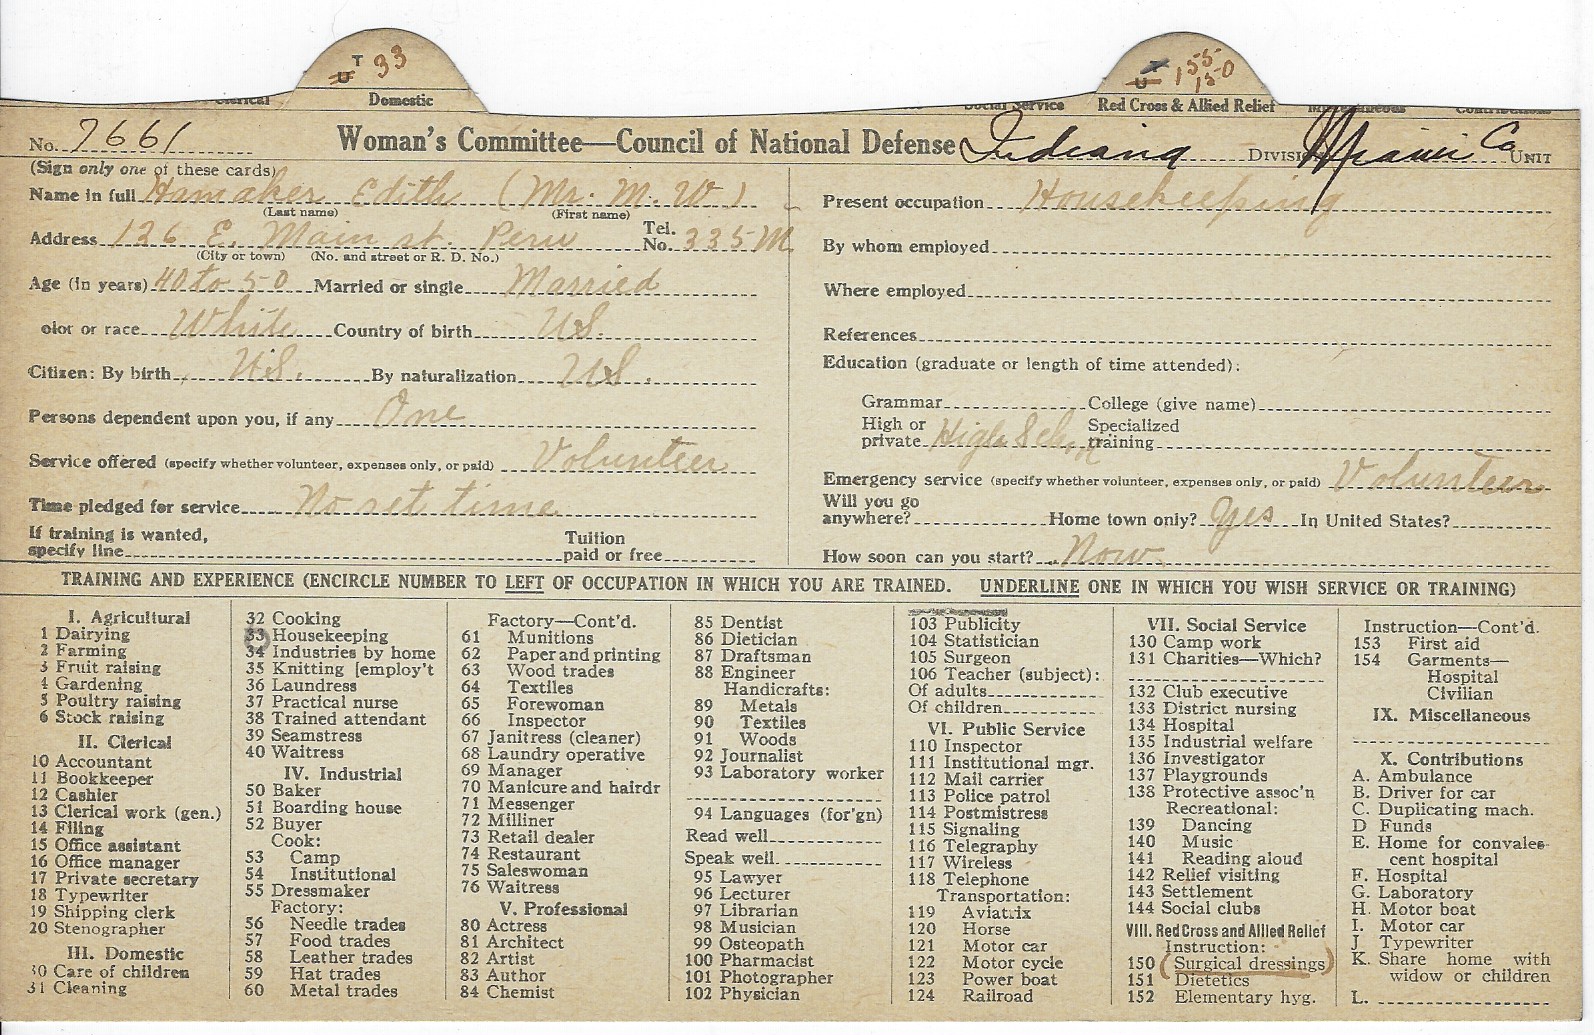 T U 33
U 155 150
Domestic
Social Service Red Cross & Allied Relief Miscellaneous Contributions
No. 7661 Woman's Committee—Council of National Defense Indiana DIVISION Miami Co UNIT
(Sign only one of these cards)
Name in full Hamaker Edith (Mr. M. W)
(Last name) (First name)
Address 126 E. Main st. Peru Tel. No. 335 M
(City or town) (No. and street or R. D. No.)
Age (in years) 40 to 50 Married or single Married
olor or race White Country of birth U.S.
Citizen: By birth U.S. By naturalization U.S.
Persons dependent upon you, if any One
Service offered (specify whether volunteer, expenses only, or paid) Volunteer
Time pledged for service No set time
If training is wanted,
specify line
Tuition
paid or free
Present occupation Housekeeping
By whom employed
Where employed
References
Education (graduate or length of time attended):
Grammar College (give name)
High or private High School Specialized training
Emergency service (specify whether volunteer, expenses only, or paid) Volunteer
Will you go
anywhere? Home town only? Yes In United States?
How soon can you start? Now
TRAINING AND EXPERIENCE (ENCIRCLE NUMBER TO LEFT OF OCCUPATION IN WHICH YOU ARE TRAINED. UNDERLINE ONE IN WHICH YOU WISH SERVICE OR TRAINING)
I. Agricultural
1 Dairying
2 Farming
3 Fruit raising
4 Gardening
5 Poultry raising
6 Stock raising
II. Clerical
10 Accountant
11 Bookkeeper
12 Cashier
13 Clerical work (gen.)
14 Filing
15 Office assistant
16 Office manager
17 Private secretary
18 Typewriter
19 Shipping clerk
20 Stenographer
III. Domestic
30 Care of children
31 Cleaning
32 Cooking
33 Housekeeping
34 Industries by home
35 Knitting [employ't
36 Laundress
37 Practical nurse
38 Trained attendant
39 Seamstress
40 Waitress
IV. Industrial
50 Baker
51 Boarding house
52 Buyer
Cook:
53 Camp
54 Institutional
55 Dressmaker
Factory:
56 Needle trades
57 Food trades
58 Leather trades
59 Hat trades
60 Metal trades
Factory—Cont'd.
61 Munitions
62 Paper and printing
63 Wood trades
64 Textiles
65 Forewoman
66 Inspector
67 Janitress (cleaner)
68 Laundry operative
69 Manager
70 Manicure and hairdr
71 Messenger
72 Milliner
73 Retail dealer
74 Restaurant
75 Saleswoman
76 Waitress
V. Professional
80 Actress
81 Architect
82 Artist
83 Author
84 Chemist
85 Dentist
86 Dietician
87 Draftsman
88 Engineer
Handicrafts:
89 Metals
90 Textiles
91 Woods
92 Journalist
93 Laboratory worker
94 Languages (for'gn)
Read well
Speak well
95 Lawyer
96 Lecturer
97 Librarian
98 Musician
99 Osteopath
100 Pharmacist
101 Photographer
102 Physician
103 Publicity
104 Statistician
105 Surgeon
106 Teacher (subject):
Of adults
Of children
VI. Public Service
110 Inspector
111 Institutional mgr.
112 Mail carrier
113 Police patrol
114 Postmistress
115 Signaling
116 Telegraphy
117 Wireless
118 Telephone
Transportation:
119 Aviatrix
120 Horse
121 Motor car
122 Motor cycle
123 Power boat
124 Railroad
VII. Social Service
130 Camp work
131 Charities—Which?
132 Club executive
133 District nursing
134 Hospital
135 Industrial welfare
136 Investigator
137 Playgrounds
138 Protective assoc'n
Recreational:
139 Dancing
140 Music
141 Reading aloud
142 Relief visiting
143 Settlement
144 Social clubs
VIII. Red Cross and Allied Relief
Instruction:
150 (Surgical dressings)
151 Dietetics
152 Elementary hyg.
Instruction—Cont'd.
153 First aid
154 Garments—
Hospital
Civilian
IX. Miscellaneous
X. Contributions
A. Ambulance
B. Driver for car
C. Duplicating mach.
D Funds
E. Home for convales-
cent hospital
F. Hospital
G. Laboratory
H. Motor boat
I. Motor car
J. Typewriter
K. Share home with
widow or children
L.